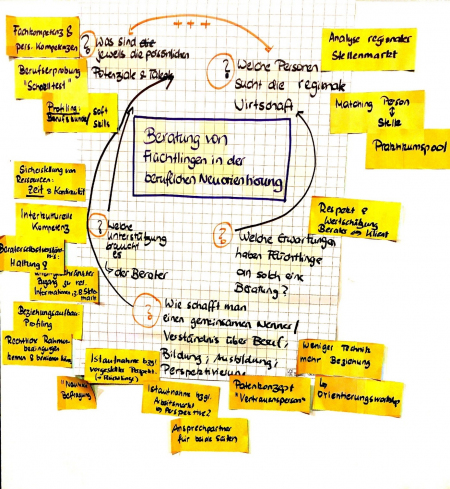 Fachkompetenz &
pers. Kompetenzen
Berufserprobung
"Schnelltest"
Profiling:
Soft
Skills
Was sind
jeweils die persönlichen
Potenziale & Talente
+++
Welche Personen
sucht die regionale
Wirtschaft
Analyse regionaler
Stellenmarkt
Matching Person
Stelle
Praktikumspool
Beratung von
Flüchtlingen in der
beruflichen Neuorientierung
Sicherstellung von
Ressourcen:
Zeit & Kontinuität
Interkulturelle
Kompetenz
Haltung &
Zugang zu rel.
Informationen, z.B. Stellen-
markt
Beziehungsaufbau
Profiling
Rechtliche Rahmen-
bedingungen
kennen &
welche
Unterstützung
braucht
es
↳ der Berater
Welche Erwartungen
haben Flüchtlinge
an solch eine
Beratung?
Respekt &
Wertschätzung
Berater ⇔ Klient
Wie schafft man
einen gemeinsamen Nenner/
Verständnis über Beruf,
Bildung, Ausbildung,
Perspektivierung
Weniger Technik
mehr Beziehung
Istaufnahme bzgl.
vorgestellter Perspekt.
"Neutrale"
Befragung
Istaufnahme bzgl.
Arbeitsmarkt
Perspektive?
Patenkonzept
"Vertrauensperson"
↳ Orientierungsworkshop
Ansprechpartner
für beide Seiten